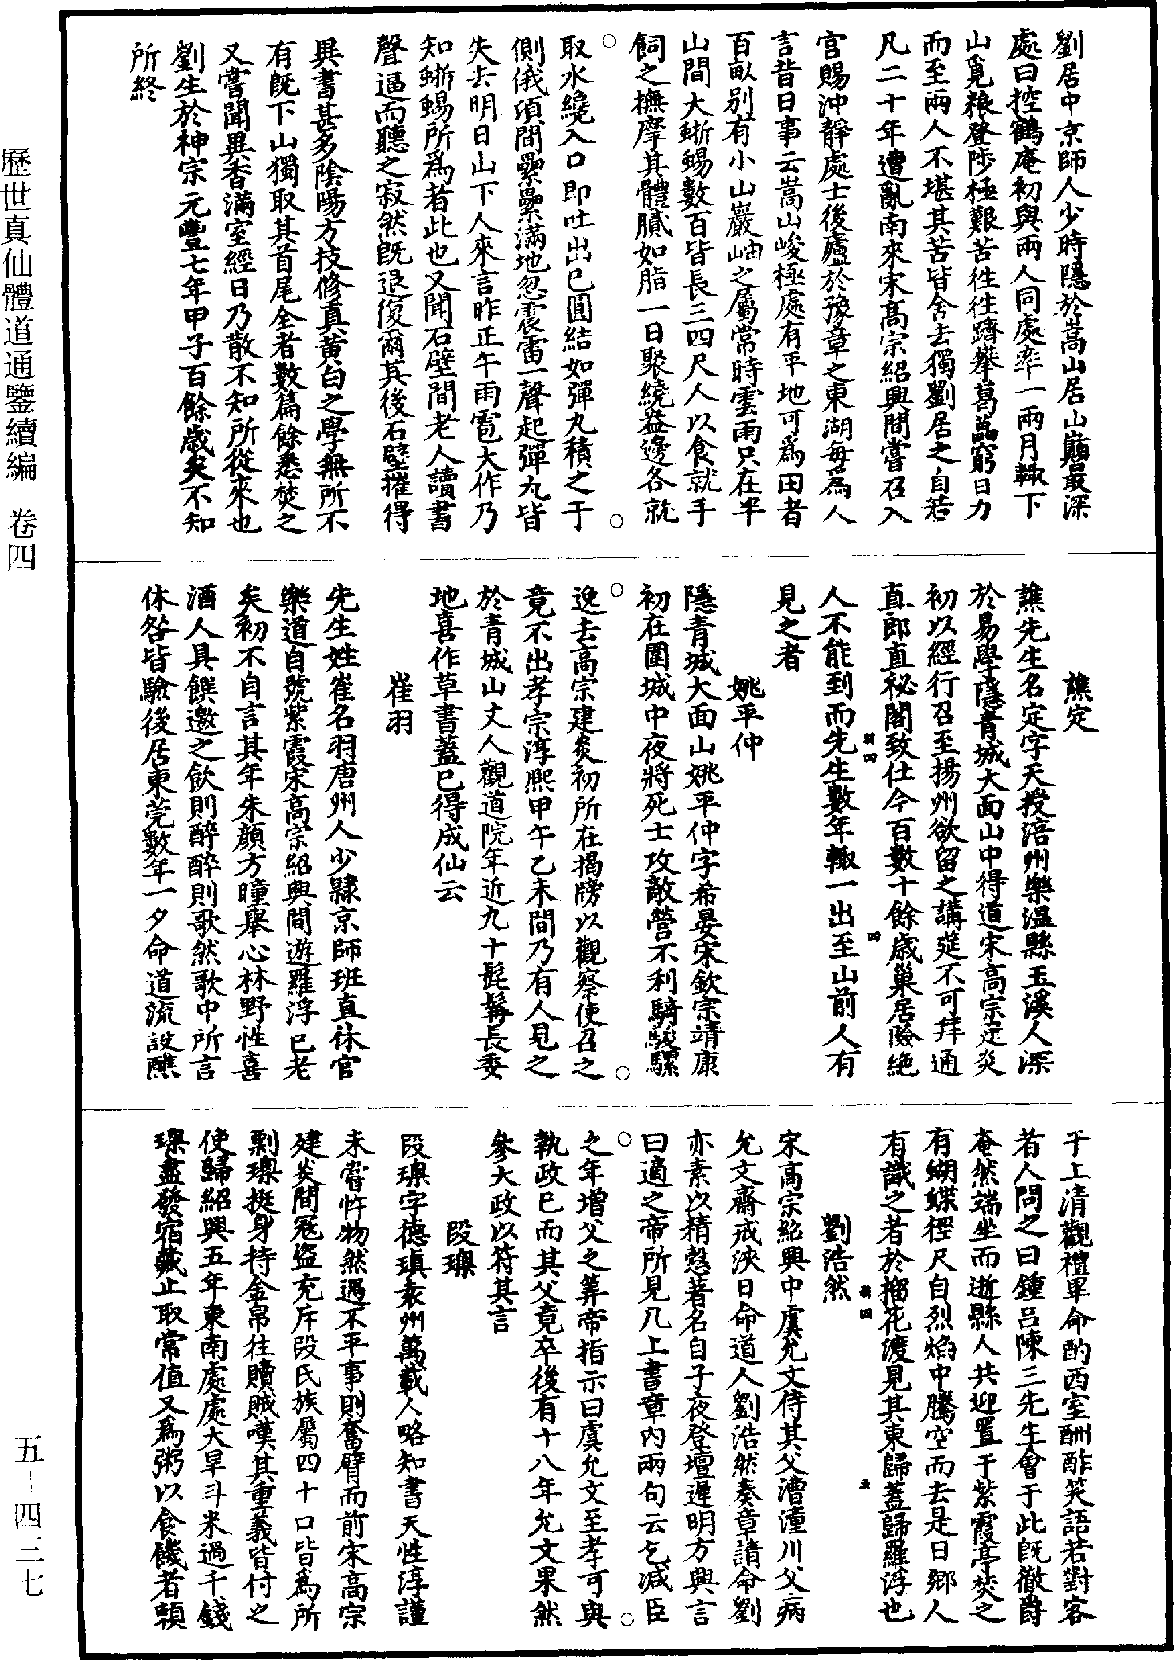 劉居中京師人少時隱於嵩山居山巔最深
處曰控鶴庵初與兩人同處率一兩月輒下
山覓粮登陟極艱苦往往躋攀葛藟窮日力
而至兩人不堪其苦皆舍去獨劉居之自若
凡二十年遭亂南來宋高宗紹興間嘗召入
宫賜沖靜處士後廬於豫章之東湖每為人
言昔日事云嵩山峻極處有平地可為田者
百畝别有小山巖岫之屬常時雲雨只在半
山間大蜥蜴數百皆長三四尺人以食就手
飼之撫摩其體膩如脂一日聚繞盎邊各就
取水繞入口即吐出已圓結如彈丸積之于
側俄頃間纍纍滿地忽震雷一聲起彈丸皆
失去明日山下人來言昨正午雨雹大作乃
知蜥蜴所為者此也又聞石壁間老人讀書
聲逼而聽之寂然既退復爾其後石壁摧得
異書甚多陰陽方技修真黄白之學無所不
有既下山獨取其首尾全者數篇餘悉焚之
又嘗聞異香滿室經日乃散不知所從來也
劉生於神宗元豐七年甲子百餘歲矣不知
所終
譙定
譙先生名定字天授涪州樂溫縣玉溪人深
於易學隱青城大面山中得道宋高宗建炎
初以經行召至揚州欲留之講筵不可拜通
直郎直祕閣致仕今百數十餘歲巢居險絶
人不能到而先生數年輒一出至山前人有
見之者
姚平仲
隱青城大面山姚平仲字希晏宋欽宗靖康
初在圍城中夜將死士攻敵營不利騎駿騾
逸去高宗建炎初所在揭牓以觀察使召之
竟不出孝宗淳熙甲午乙未間乃有人見之
於青城山丈人觀道院年近九十髭髯長委
地喜作草書蓋已得成仙云
崔羽
先生姓崔名羽唐州人少隸京師班直休官
樂道自號紫霞宋高宗紹興間遊羅浮已老
矣初不自言其年朱顔方瞳舉心林野性喜
酒人具饌邀之飲則醉醉則歌然歌中所言
休咎皆驗後居東莞數年一夕命道流設醮
于上清觀禮畢命酌西室酬酢笑語若對客
者人問之曰鍾呂陳三先生會于此既徹爵
奄然端坐而逝縣人共迎置于紫霞亭焚之
有蝴蝶徑尺自烈焰中騰空而去是日郷人
有識之者於榴花渡見其東歸蓋歸羅浮也
劉浩然
宋高宗紹興中虞允文侍其父漕潼川父病
允文齋戒浹日命道人劉浩然奏章請命劉
亦素以精慤著名自子夜登壇遲明方興言
曰適之帝所見几上書章内兩句云乞減臣
之年增父之筭帝指示曰虞允文至孝可與
執政已而其父竟卒後有十八年允文果然
參大政以符其言
段璪
段璪字德瑱袁州萬載人略知書天性淳謹
未嘗忤物然遇不平事則奮臂而前宋高宗
建炎間冦盜充斥段氏族屬四十口皆為所
剽璪挺身持金帛往贖賊嘆其重義皆付之
使歸紹興五年東南處處大旱斗米過千錢
璪盡發宿藏止取常值又為粥以食饑者頼
歷世真仙體道通鑒續編　卷四
五-四三七